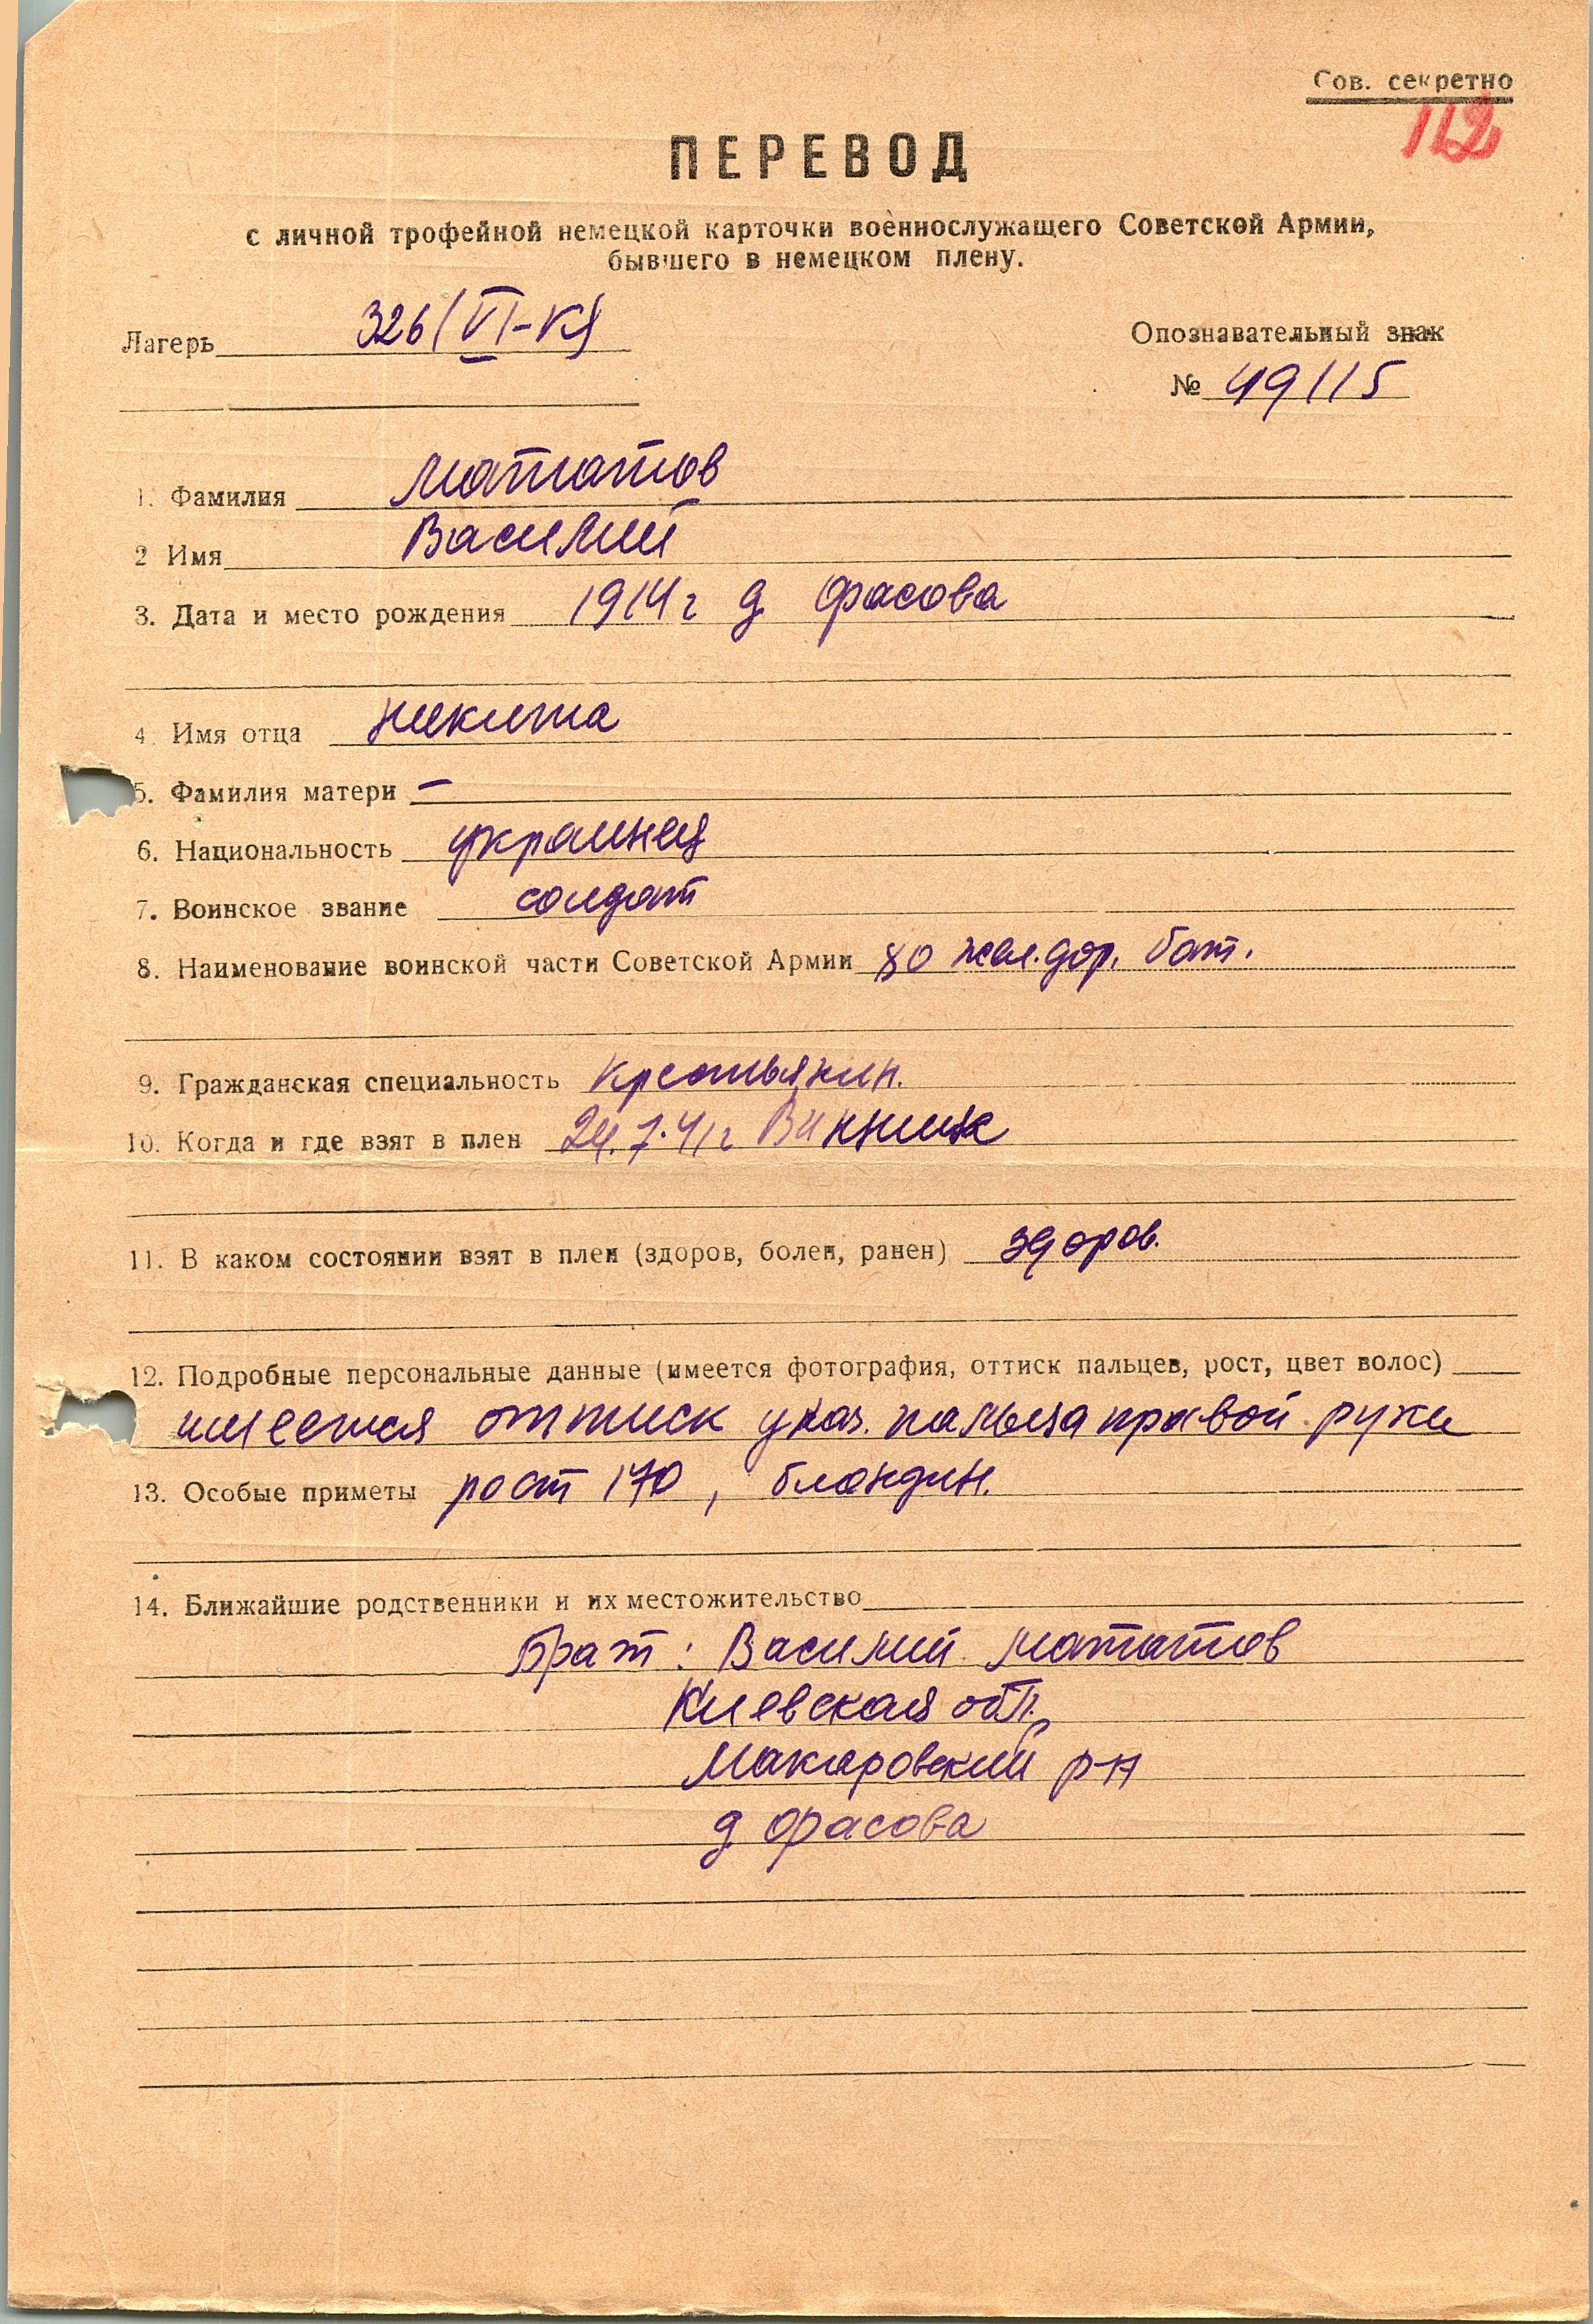 Сов. секретно
112
ПЕРЕВОД
с личной трофейной немецкой карточки военнослужащего Советской Армии,
бывшего в немецком плену.
Лагерь 326 (VI-К)
Опознавательный знак
№ 49115
1. Фамилия Мататов
2 Имя Василий
3. Дата и место рождения 1914 г д Фасова
4. Имя отца Никита
5. Фамилия матери –
6. Национальность украинец
7. Воинское звание солдат
8. Наименование воинской части Советской Армии 80 жел.дор. бат.
9. Гражданская специальность крестьянин.
10. Когда и где взят в плен 24.7.41г Винница
11. В каком состоянии взят в плен (здоров, болен, ранен) здоров.
12. Подробные персональные данные (имеется фотография, оттиск пальцев, рост, цвет волос)
имеется оттиск указ. пальца правой руки
13. Особые приметы рост 170, блондин.
14. Ближайшие родственники и их местожительство
Брат: Василий Мататов
Киевская обл.
Макаровский р-н
д Фасова